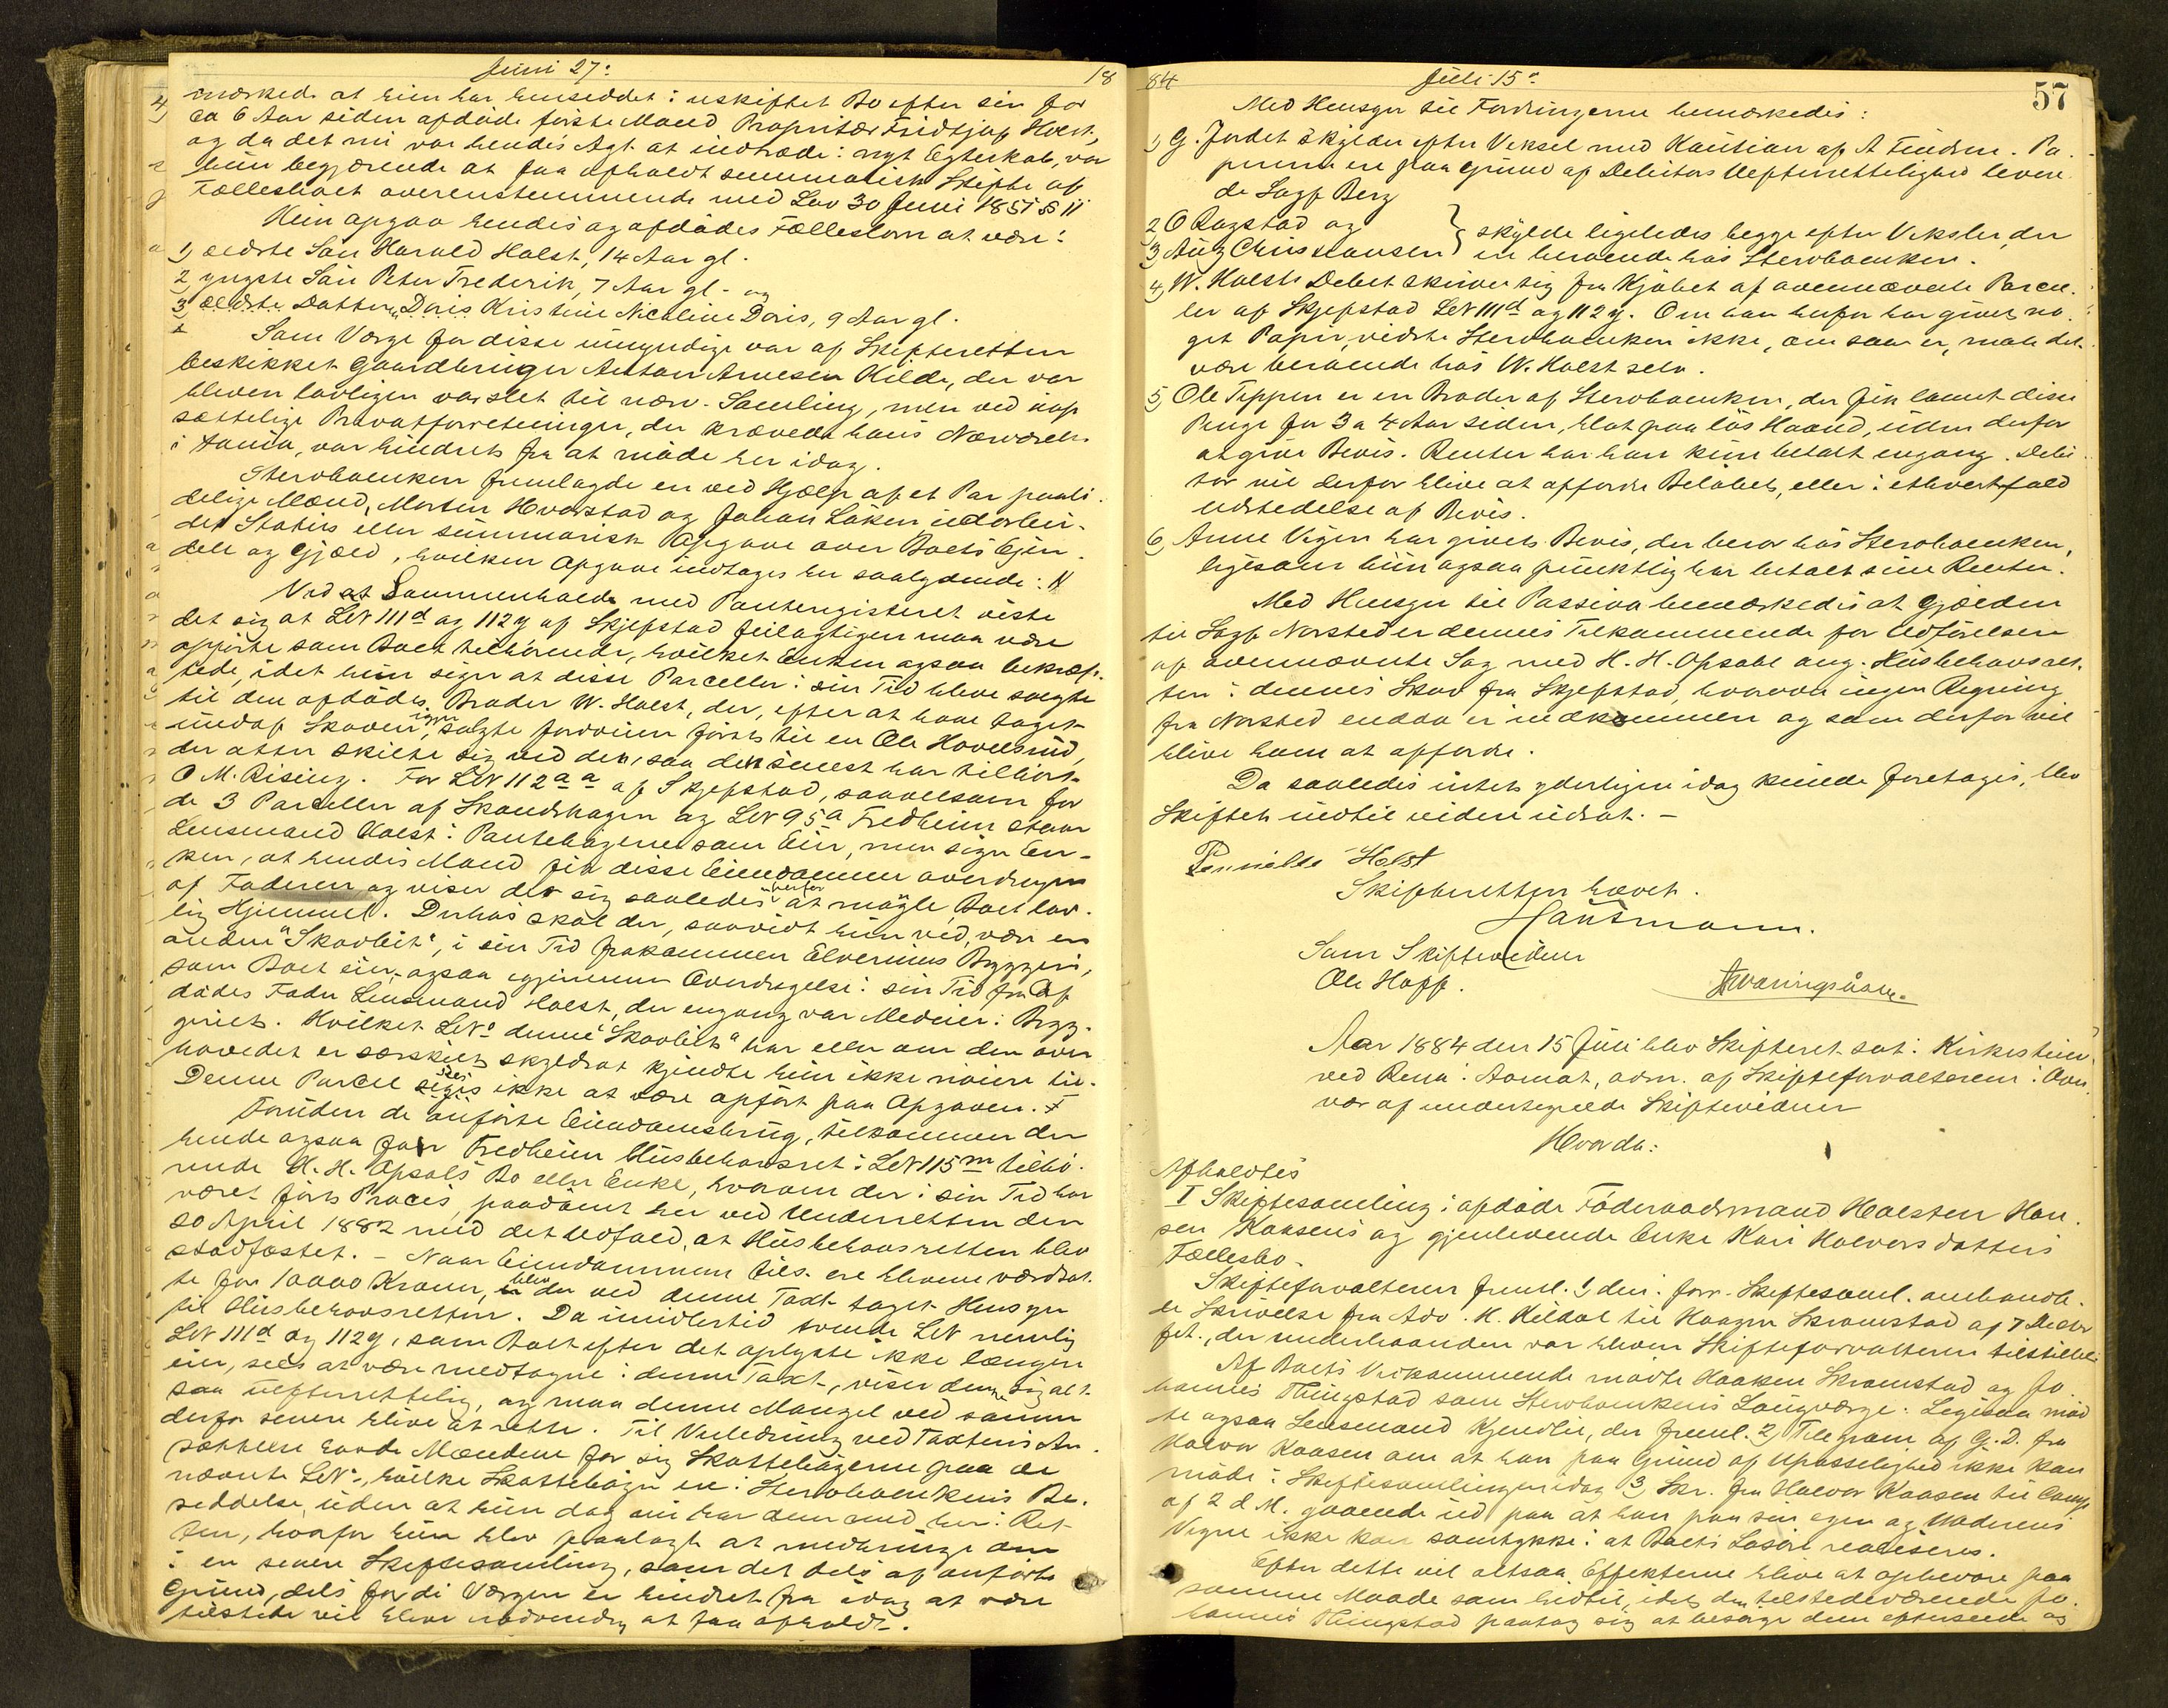 Juni 27:
18
mærkede at hun har hensiddet i uskiftet Bo efter sin for
ca 6 Aar siden afdøde første Mand Proprietær Fridtjof Holst,
og da det nu var hendes Agt at indtræde i nyt Egteskab, var
hun begjærende at faa afholdt summarisk Skifte af
Fællesboet overensstemmende med Lov 30 Juni 1851 § 11
Hun opgav hendes og afdødes Fællesbørn at være:
1) ældste Søn Harald Holst, 14 Aar gl.
2, yngste Søn Peter Frederik, 7 Aar gl. og
3, ældste Datter, Doris Kristine Nicoline Doris, 9 Aar gl.
Som Værge for disse umyndige var af Skifteretten
beskikket Gaardbruger Anton Arnesen Kilde, der var
bleven lovligen varslet til nærv. Samling, men ved uop
sættelige Privatforretninger, der krævede hans Nærværelse
i Aamot, var hindret fra at møde her idag.
Stervboenken fremlagde en ved Hjælp af et Par paali-
delige Mænd, Morten Hvorstad og Johan Løken udarbei-
det Status eller summarisk Opgave over Boets Eien
dele og Gjæld, hvilken Opgave indtages her saalydende: N
Ved at Sammenholde med Panteregisteret viste
det sig at LN 111d og 112y af Skjefstad feilagtigen maa være
opførte som Boet tilhørende, hvilket Enken ogsaa bekræf-
tede, idet hun siger at disse Parceller i sin Tid bleve solgte
til den afdødes Broder W. Holst, der, efter at have taget
undaf Skoven, igjen solgte forrvien først til en Ole Hovelsrud,
der atter skilte sig ved den, saa den senest har tilhørt
O M. Rising. For LN 112aa af Skjefstad, saavelsom for
de 3 Parceller af Skandshagen og LN 95a Fredheim staar
Lensmand Holst i Pantebøgerne som Eier, men siger En-
ken, at hendes Mand fik disse Eiendomme overdragne
af Faderen og viser det sig saaledes herfor at mangle Boet lov-
lig Hjemmel. Derhos skal der, saavidt hun ved, være en
anden "Skovteit", i sin Tid frakommen Elverums Bryggeri,
som Boet eier, ogsaa gjennem Overdragelse i sin Tid fra Af
dødes Fader Lensmand Holst, der engang var Medeier i Bryg-
geriet. Hvilket LN: denne "Skovteit" har eller om den over
hovedet er særskilt skyldsat kjendte hun ikke nøiere til.
Denne Parcel sees ikke at være opført paa Opgaven. F
Foruden de anførte Eiendomsbrug, tilkommer der
hende ogsaa for Fredheim Husbehovsret i LN 115m tilhø-
rende H. H. Opsals Bo eller Enke, hvorom der i sin Tid har
været ført Proces, paadømt her ved Underretten den
20 April 1882 med det Udfald, at Husbehovsretten blev
stadfæstet. - Naar Eiendommene tils. ere blevne værdsat-
te for 10000 Kroner, blev der ved denne Taxt taget Hensyn
til Husbehovsretten. Da imidlertid tvende LN nemlig
LN 111d og 112y, som Boet efter det oplyste ikke længer
eier, sees at være medtagne i denne Taxt, viser denne sig alt
saa uefterrettelig, og maa denne Mangel ved samme
derfor senere blive at rette. Til Veiledning ved Taxtens An-
sættelse havde Mændene for sig Skattebøgerne paa de
nævnte LN:, hvilke Skattebøger ere i Stervboenkens Be-
siddelse, uden at hun dog nu har dem med her i Ret-
ten, hvorfor hun blev paalagt at medbringe dem
i en senere Skiftesamling, som det dels af anførte
Grund, dels fordi Værgen er hindret fra idag at være
tilstede vil blive nødvendig at faa afholdt.
84
Juli 15:
57
Med Hensyn til Fordringerne bemærkedes:
1) G. Jordet skylder efter Veksel med Kaution af A Findsen. Pa-
pirerne ere paa Grund af Debitors Uefterrettelighed levere
de Sagf. Berg
2, O Ragstad og
3, Aug Chrishansen } skylde ligeledes begge efter Veksler, der
er beroende hos Stervboenken.
4, W. Holsts Debet skriver sig fra Kjøbet af ovennævnte Parcel-
ler af Skjefstad LN 111d og 112y. Om han herfor har givet no-
get Papir, vidste Stervboenken ikke, om saa er, maa det
være beroende hos W. Holst selv.
5, Ole Teppen er en Broder af Stervboenken, der fik laant disse
Penge for 3 a 4 Aar siden, blot paa løs Haand, uden derfor
at give Bevis. Renter har han kun betalt engang. Debi-
tor vil derfor blive at affordre Beløbet, eller i ethvertfald
Udstedelse af Bevis.
6, Anne Vigen har givet Bevis, der beror hos Stervboenken,
ligesom hun ogsaa punktlig har betalt sine Renter.
Med Hensyn til Passiva bemærkedes at Gjælden
til Sagf. Norsted er dennes Tilkommende for Udførelsen
af ovennævnte Sag med H. H. Opsahl ang. Husbehovsret-
ten i dennes Skov fra Skjefstad, hvorom ingen Regning
fra Norsted endda er indkommen og som derfor vil
blive ham at affordre.
Da saaledes intet yderligere idag kunde foretages, blev
Skiftet indtil videre udsat. -
Pernielle Holst
Skifteretten hævet.
Hansmann.
Som Skiftevidner
Ole Hoff.
Aar 1884 den 15 Juli blev Skifteret sat i Kirkestuen
ved Rena i Aamot, adm. af Skifteforvalteren i Over
vær af undertegnede Skiftevidner
Hvorda:
Afholdtes
I Skiftesamling i afdøde Føderaadsmand Halsten Han-
sen Kaasens og gjenlevende Enke Kari Halvorsdatters
Fællesbo.
Skifteforvalteren freml. 1) den i forr. Skiftesaml. omhandle-
de Skrivelse fra Adv. H. Kildal til Haagen Skramstad af 7 Decbr
f.A., der underhaanden var bleven Skifteforvalteren tilstillet
Af Boets Vedkommende mødte Haaken Skramstad og Jo-
hannes Thingstad som Stervboenkens Laugværge. Ligesaa mød
te ogsaa Lensmand Kjendlie, der freml. 2) Telegram af G. D. fra
Halvor Kaasen om at han paa Grund af Upasselighed ikke kan
møde i Skiftesamlingen idag 3, Skr. fra Halvor Kaasen til Comp
af 2 d. M. gaaende ud paa at han paa sin egen og Moderens
Vegne ikke kan samtykke i at Boets Løsøre realiseres.
Efter dette vil altsaa Effekterne blive at opbevare paa
samme Maade som hidtil, idet den tilstedeværende Jo-
hannes Thingstad paatog sig at besørge dem efterseede og